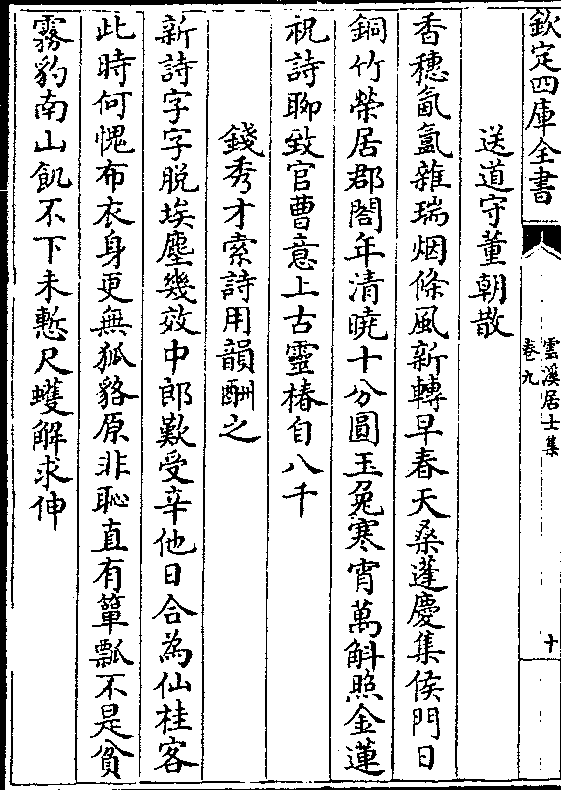 欽定四庫全書
雲溪居士集
卷九
十
送道守董朝散
香穗氤氲雜瑞烟條風新轉早春天桑蓬慶集侯門日
銅竹榮居郡閤年清曉十分圓玉兔寒宵萬斛照金蓮
祝詩聊致官曹意上古靈椿自八千
錢秀才索詩用韻酬之
新詩字字脱埃塵幾效中郎歎受辛他日合為仙桂客
此時何愧布衣身更無狐貉原非恥直有簞瓢不是貧
霧豹南山飢不下未慙尺蠖解求伸